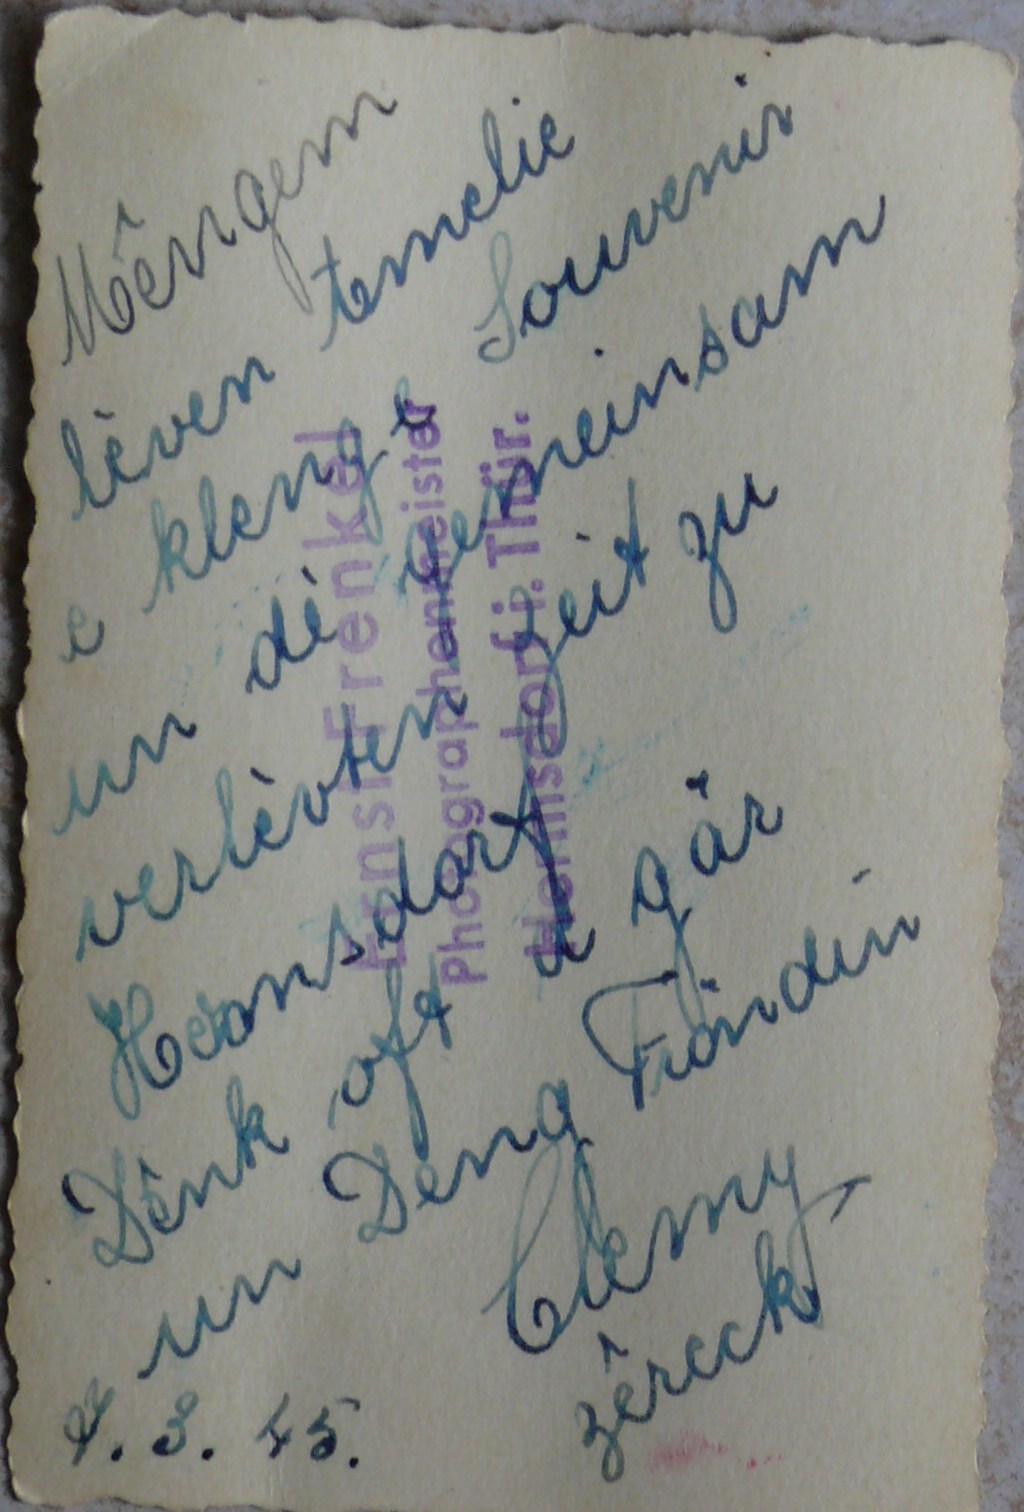 Mengem
lèven Emelie
e klenge Souvenir
un dé gemeinsam
verlèvten Zeit zu
Hermsdorf
Dênk oft a gär
un Deng Frändin
Clemy
zêreck
3. 45.
Ernst Frenkel
Photographenmeister
Hermsdorf i. Thür.